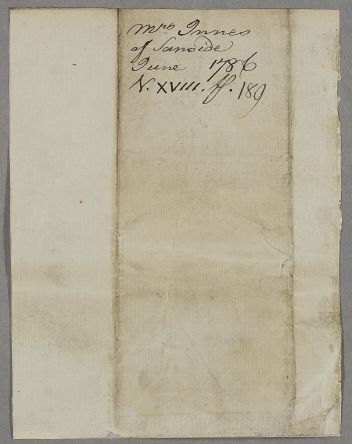 Mrs Innes
of Sanside
June 1786
N. XVIII. ff. 189